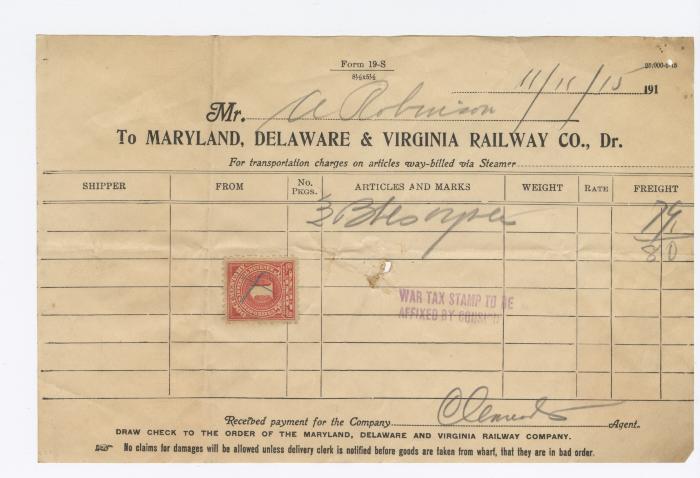 Form 19-S
8½x5½
11/11/15 191
Mr. A Robinson
To MARYLAND, DELAWARE & VIRGINIA RAILWAY CO., Dr.
For transportation charges on articles way-billed via Steamer
SHIPPER FROM No. Pkgs. ARTICLES AND MARKS WEIGHT RATE FREIGHT
79
1
80
WAR TAX STAMP TO BE
AFFIXED BY CONSIGNEE
Received payment for the Company Agent.
DRAW CHECK TO THE ORDER OF THE MARYLAND, DELAWARE AND VIRGINIA RAILWAY COMPANY.
No claims for damages will be allowed unless delivery clerk is notified before goods are taken from wharf, that they are in bad order.